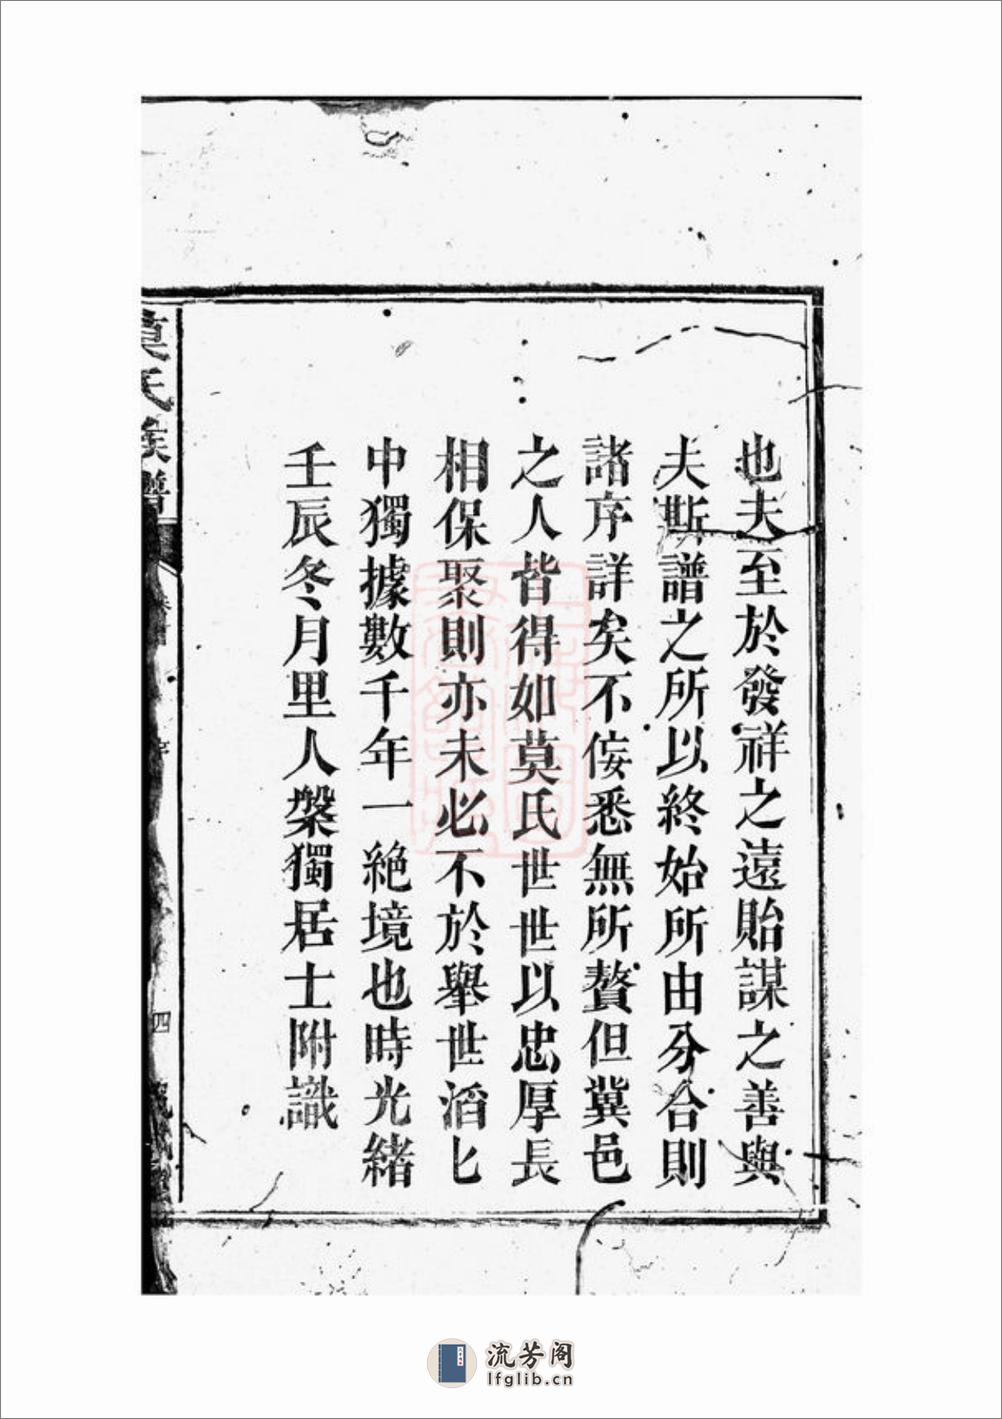 也夫至於發祥之遠貽謀之善與
夫斯譜之所以終始所由分合則
諸序詳矣不侫悉無所贅但冀邑
之人皆得如莫氏世世以忠厚長
相保聚則亦未必不於舉世滔匕
中獨據數千年一絕境也時光緒
壬辰冬月里人槃獨居士附識
莫氏族譜
序
四
流芳阁
lfglib.cn